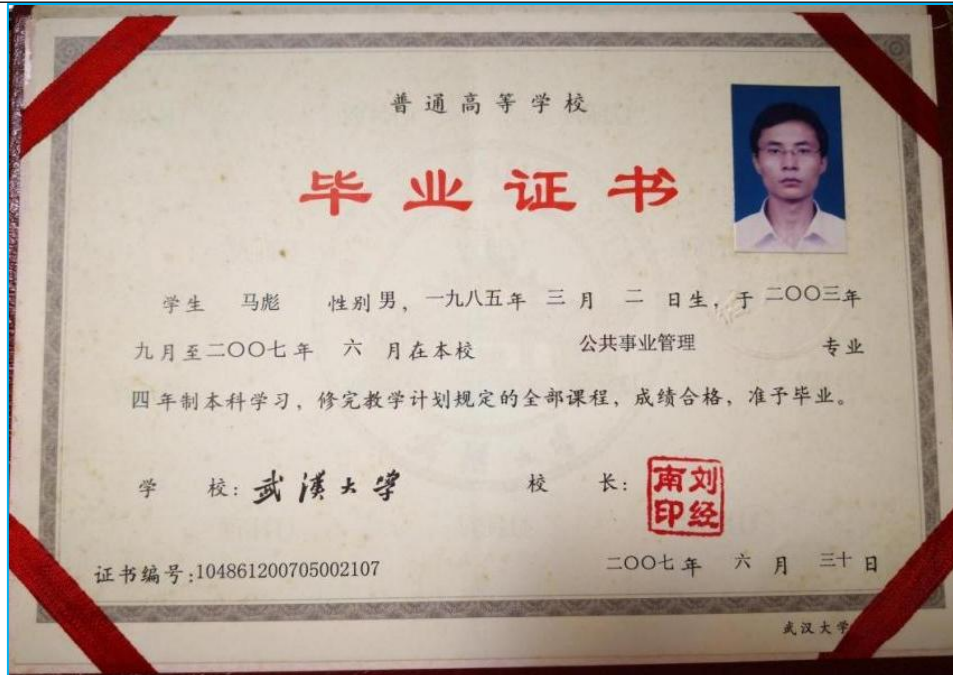 普通高等学校
毕业证书
学生 马彪 性别 男，一九八五年 三 月 二 日生，于 二〇〇三年
九月至二〇〇七年 六 月在本校 公共事业管理 专业
四年制本科学习，修完教学计划规定的全部课程，成绩合格，准予毕业。
学 校：武漢大学 校 长：刘经南印
证书编号：104861200705002107 二〇〇七年 六 月 三十 日
武汉大学